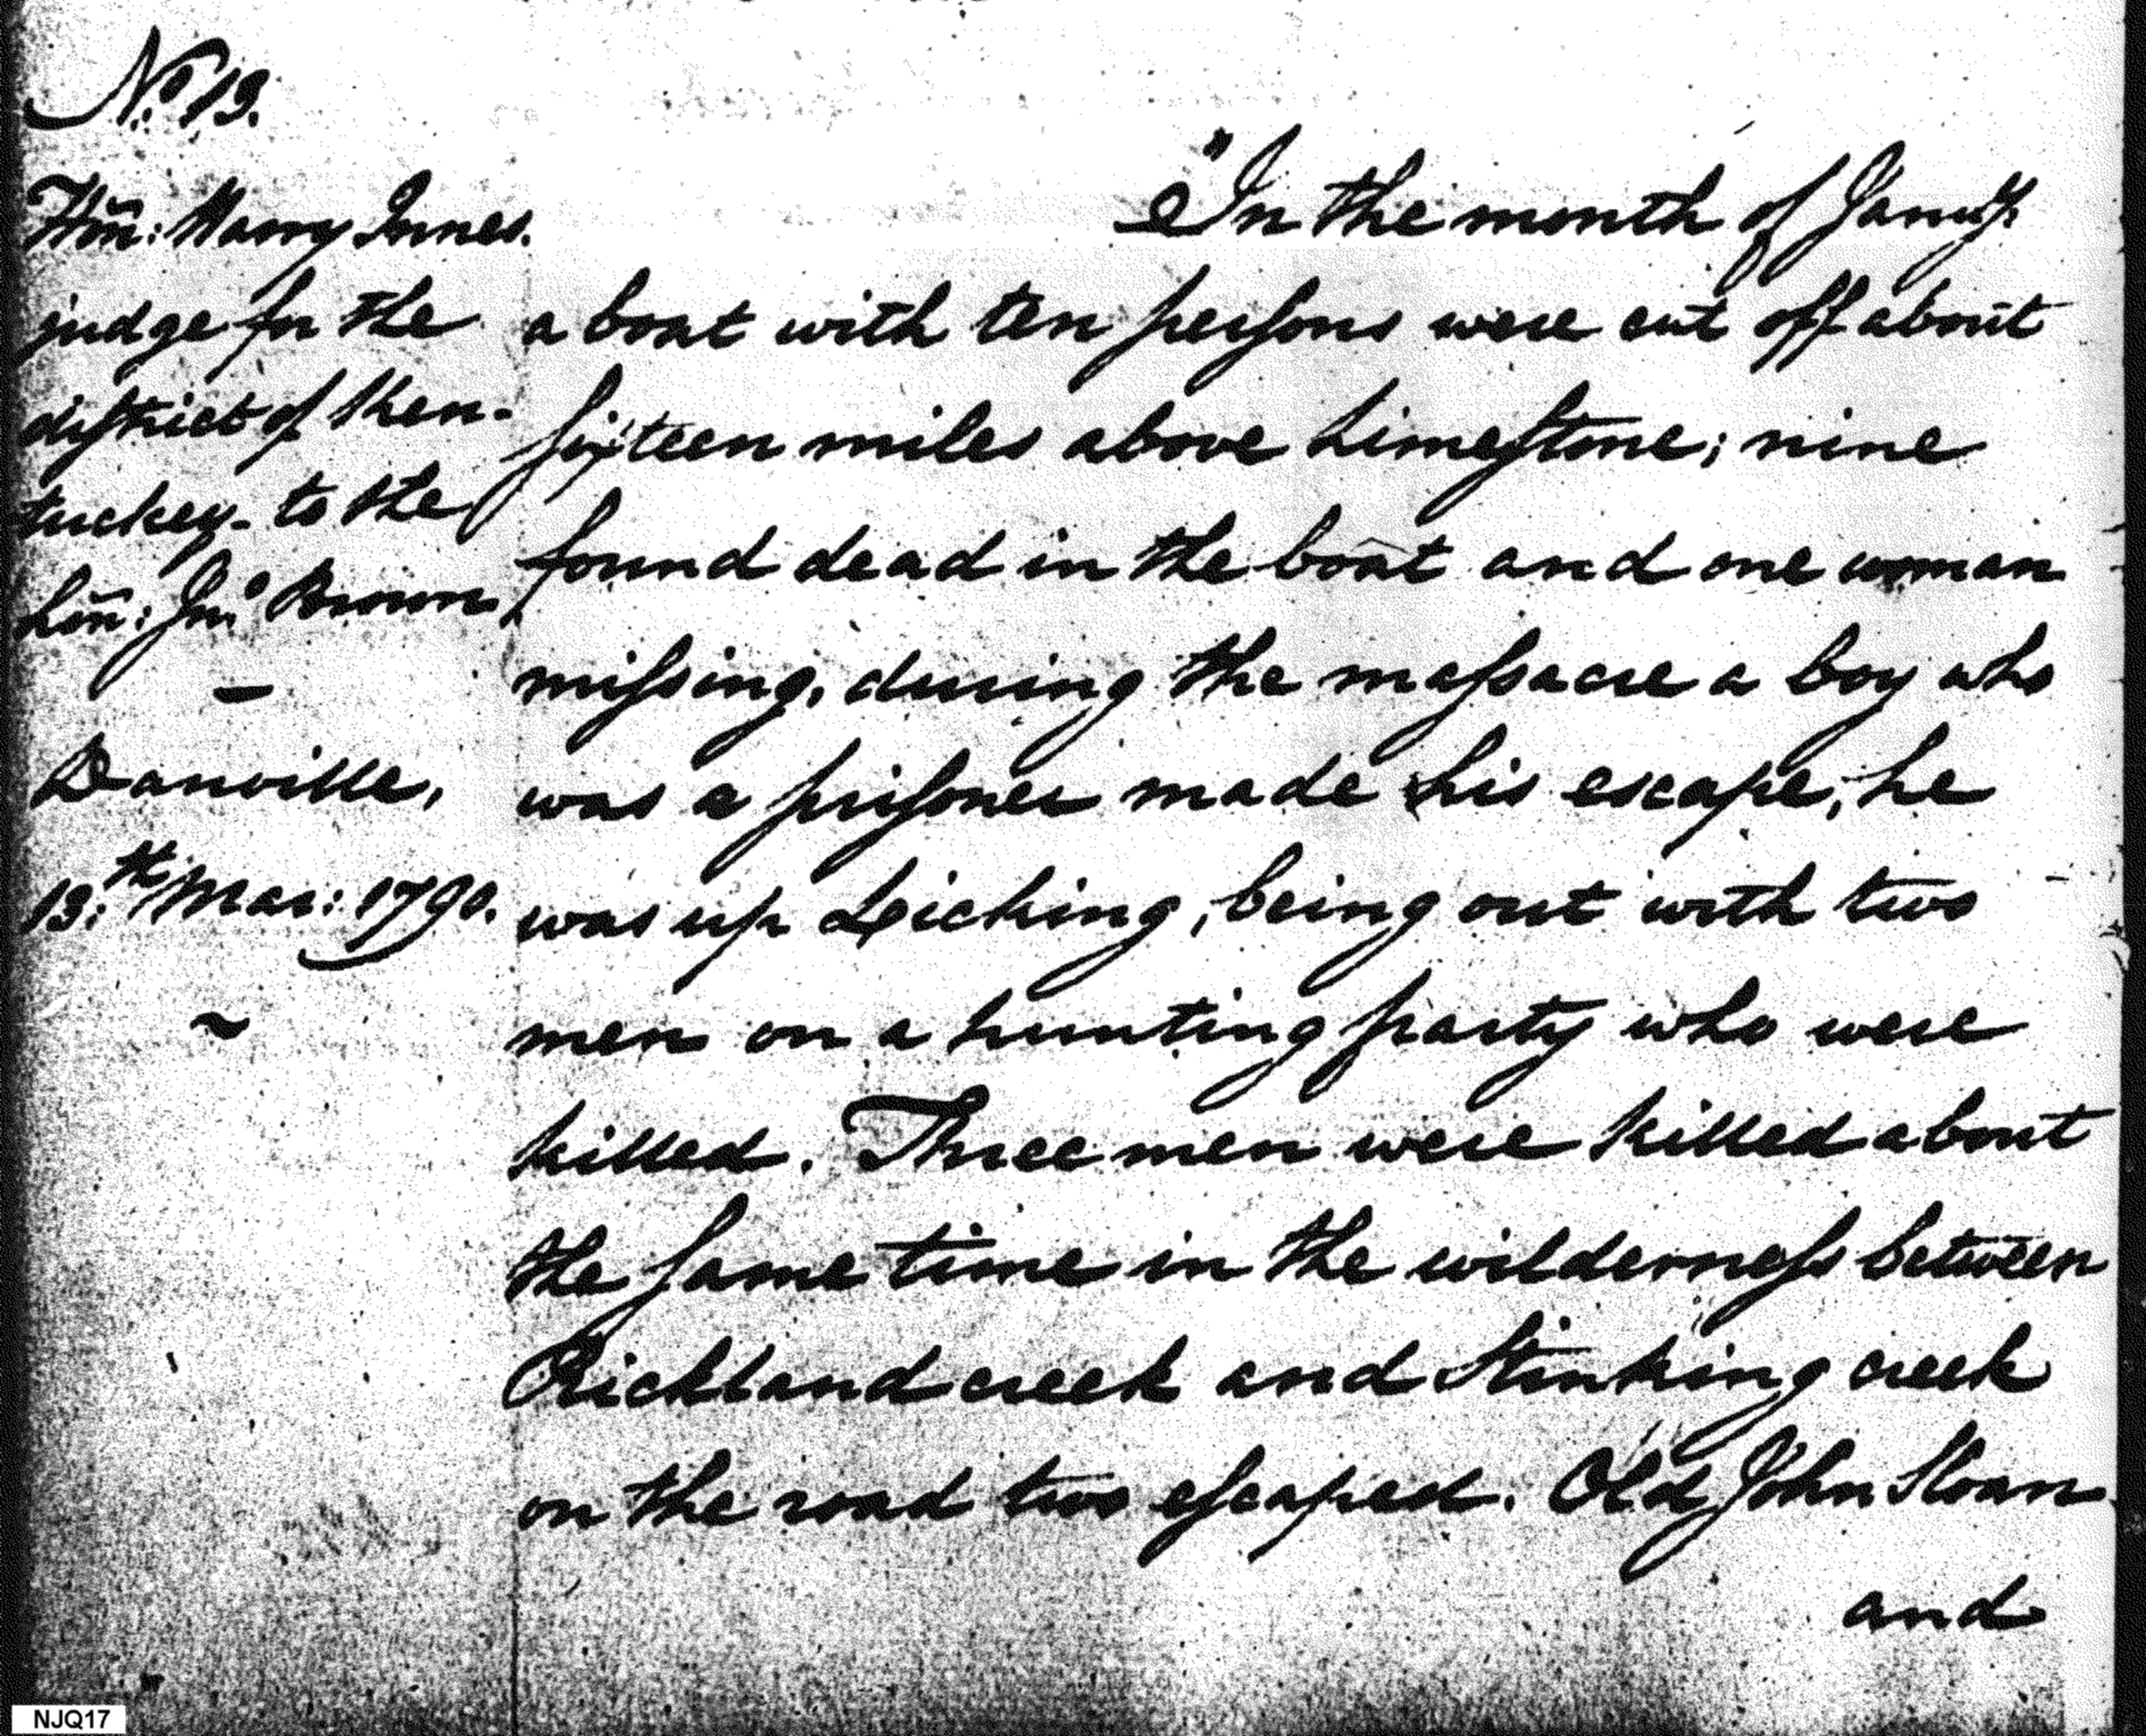 No. 13.
Hon: Harry Innes.
judge for the
district of Ken-
tuckey - to the
hon: Jno. Brown,
—
Danville,
13.th Mar: 1790.
~
"In the month of Janu'y.
a boat with ten persons were cut off about
sixteen miles above Limestone; nine
found dead in the boat and one woman
missing, during the massacre a boy who
was a prisoner made his escape, he
was up Leicking, being out with two
men on a hunting party who were
killed. Three men were killed about
the same time in the wilderness between
Richland creek and Stinking creek
on the road two escaped. Old John Sloan
and
NJQ17